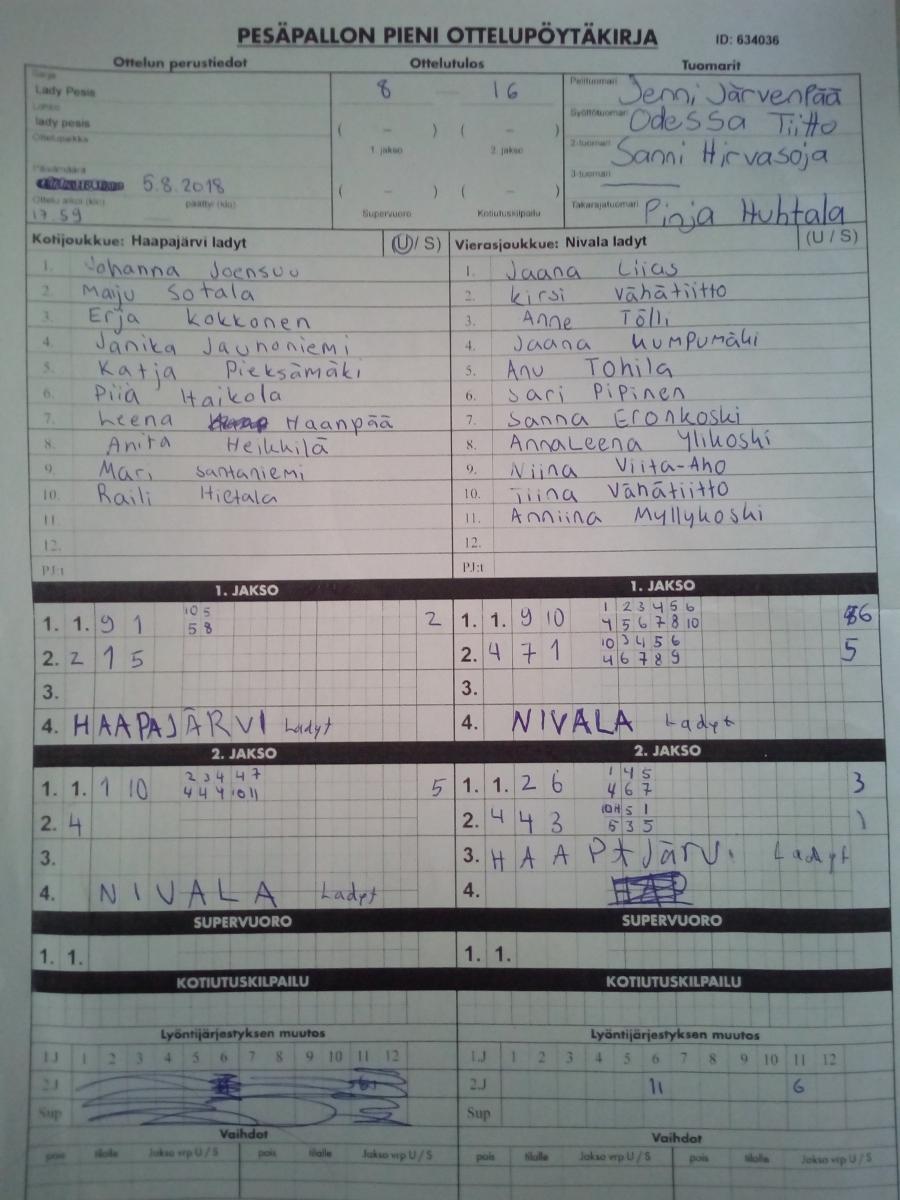 PESÄPALLON PIENI OTTELUPÖYTÄKIRJA ID: 634036
Ottelun perustiedot Ottelutulos Tuomarit
Sarja
Lady Pesis
Lohko
lady pesis
Ottelupaikka
Päivämäärä
5.8.2018
Ottelu alkoi (klo) päättyi (klo)
17.59
8 — 16
( – ) ( – )
1. jakso 2. jakso
( – ) ( – )
Supervuoro Kotiutuskilpailu
Pelituomari Jenni Järvenpää
Syöttötuomari Odessa Tiitto
2-tuomari Sanni Hirvasoja
3-tuomari
Takarajatuomari Pinja Huhtala
Kotijoukkue: Haapajärvi ladyt (U / S)
1. Johanna Joensuu
2. Maiju Sotala
3. Erja Kokkonen
4. Janika Jaunoniemi
5. Katja Pieksämäki
6. Piia Haikola
7. Leena Haanpää
8. Anita Heikkilä
9. Mari Santaniemi
10. Raili Hietala
11.
12.
PJ:t
Vierasjoukkue: Nivala ladyt (U / S)
1. Jaana Liias
2. Kirsi Vähätiitto
3. Anne Tölli
4. Jaana Kumpumäki
5. Anu Tohila
6. Sari Pipinen
7. Sanna Eronkoski
8. AnnaLeena Ylikoski
9. Niina Viita-Aho
10. Tiina Vähätiitto
11. Anniina Myllykoski
12.
PJ:t
1. JAKSO
1. 1. 9 1 10 5 2
5 8
2. 2 1 5
3.
4. HAAPAJÄRVI Ladyt
1. JAKSO
1. 1. 9 10 1 2 3 4 5 6 6
4 5 6 7 8 10
2. 4 7 1 10 3 4 5 6 5
4 6 7 8 9
3.
4. NIVALA Ladyt
2. JAKSO
1. 1. 1 10 2 3 4 4 7 5
4 4 4 10 11
2. 4
3.
4. NIVALA Ladyt
2. JAKSO
1. 1. 2 6 1 4 5 3
4 6 7
2. 4 4 3 10 11 5 1 1
5 3 5
3. HAAPAJärVi Ladyt
4.
SUPERVUORO
1. 1.
SUPERVUORO
1. 1.
KOTIUTUSKILPAILU
KOTIUTUSKILPAILU
Lyöntijärjestyksen muutos
1.J 1 2 3 4 5 6 7 8 9 10 11 12
2.J
Sup
Vaihdot
pois tilalle Jakso vrp U / S pois tilalle Jakso vrp U / S
Lyöntijärjestyksen muutos
1.J 1 2 3 4 5 6 7 8 9 10 11 12
2.J 11 6
Sup
Vaihdot
pois tilalle Jakso vrp U / S pois tilalle Jakso vrp U / S